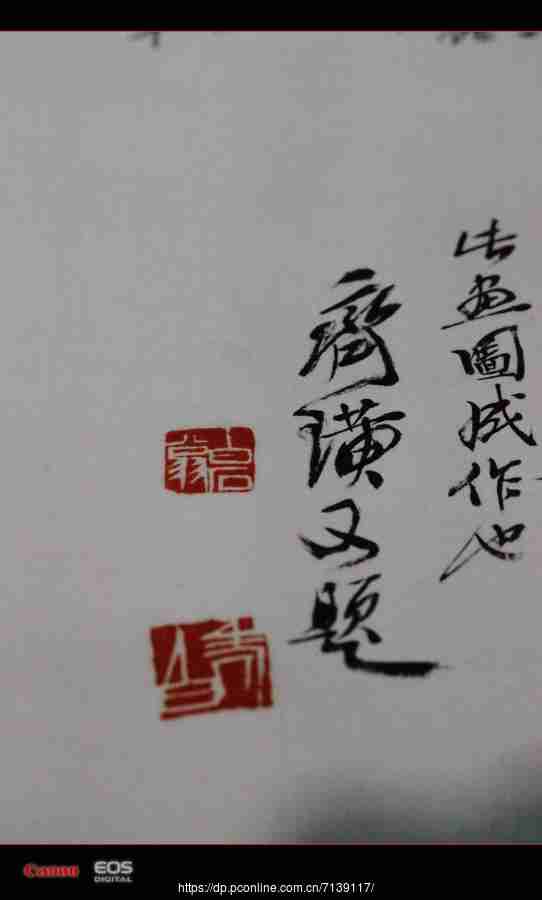 此画圖成作也
齊璜又題
Canon
EOS
DIGITAL
https://dp.pconline.com.cn/7139117/